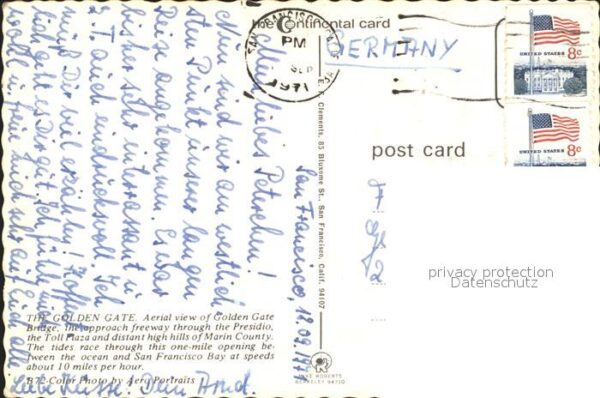 the continental card
SAN FRANCISCO, CA
PM
SEP
1971
GERMANY
UNITED STATES 8c
UNITED STATES 8c
post card
E. F. Clements, 85 Bluxome St., San Francisco, Calif. 94107
San Francisco, 12.09.1971
Mein liebes Peterchen!
Nun sind wir am westlich-
sten Punkt unserer langen
Reise angekommen. Es war
bisher sehr interessant u.
z. T. auch eindrucksvoll. Ich
Dir viel erzählen! Hoffent-
lich geht es Dir gut. Ich
freue mich sehr auf
Liebe Küsse! Dein
THE GOLDEN GATE. Aerial view of Golden Gate
Bridge, the approach freeway through the Presidio,
the Toll Plaza and distant high hills of Marin County.
The tides race through this one-mile opening be-
tween the ocean and San Francisco Bay at speeds
about 10 miles per hour.
B72-Color Photo by Aero Portraits
MIKE ROBERTS
BERKELEY 94710
privacy protection
Datenschutz